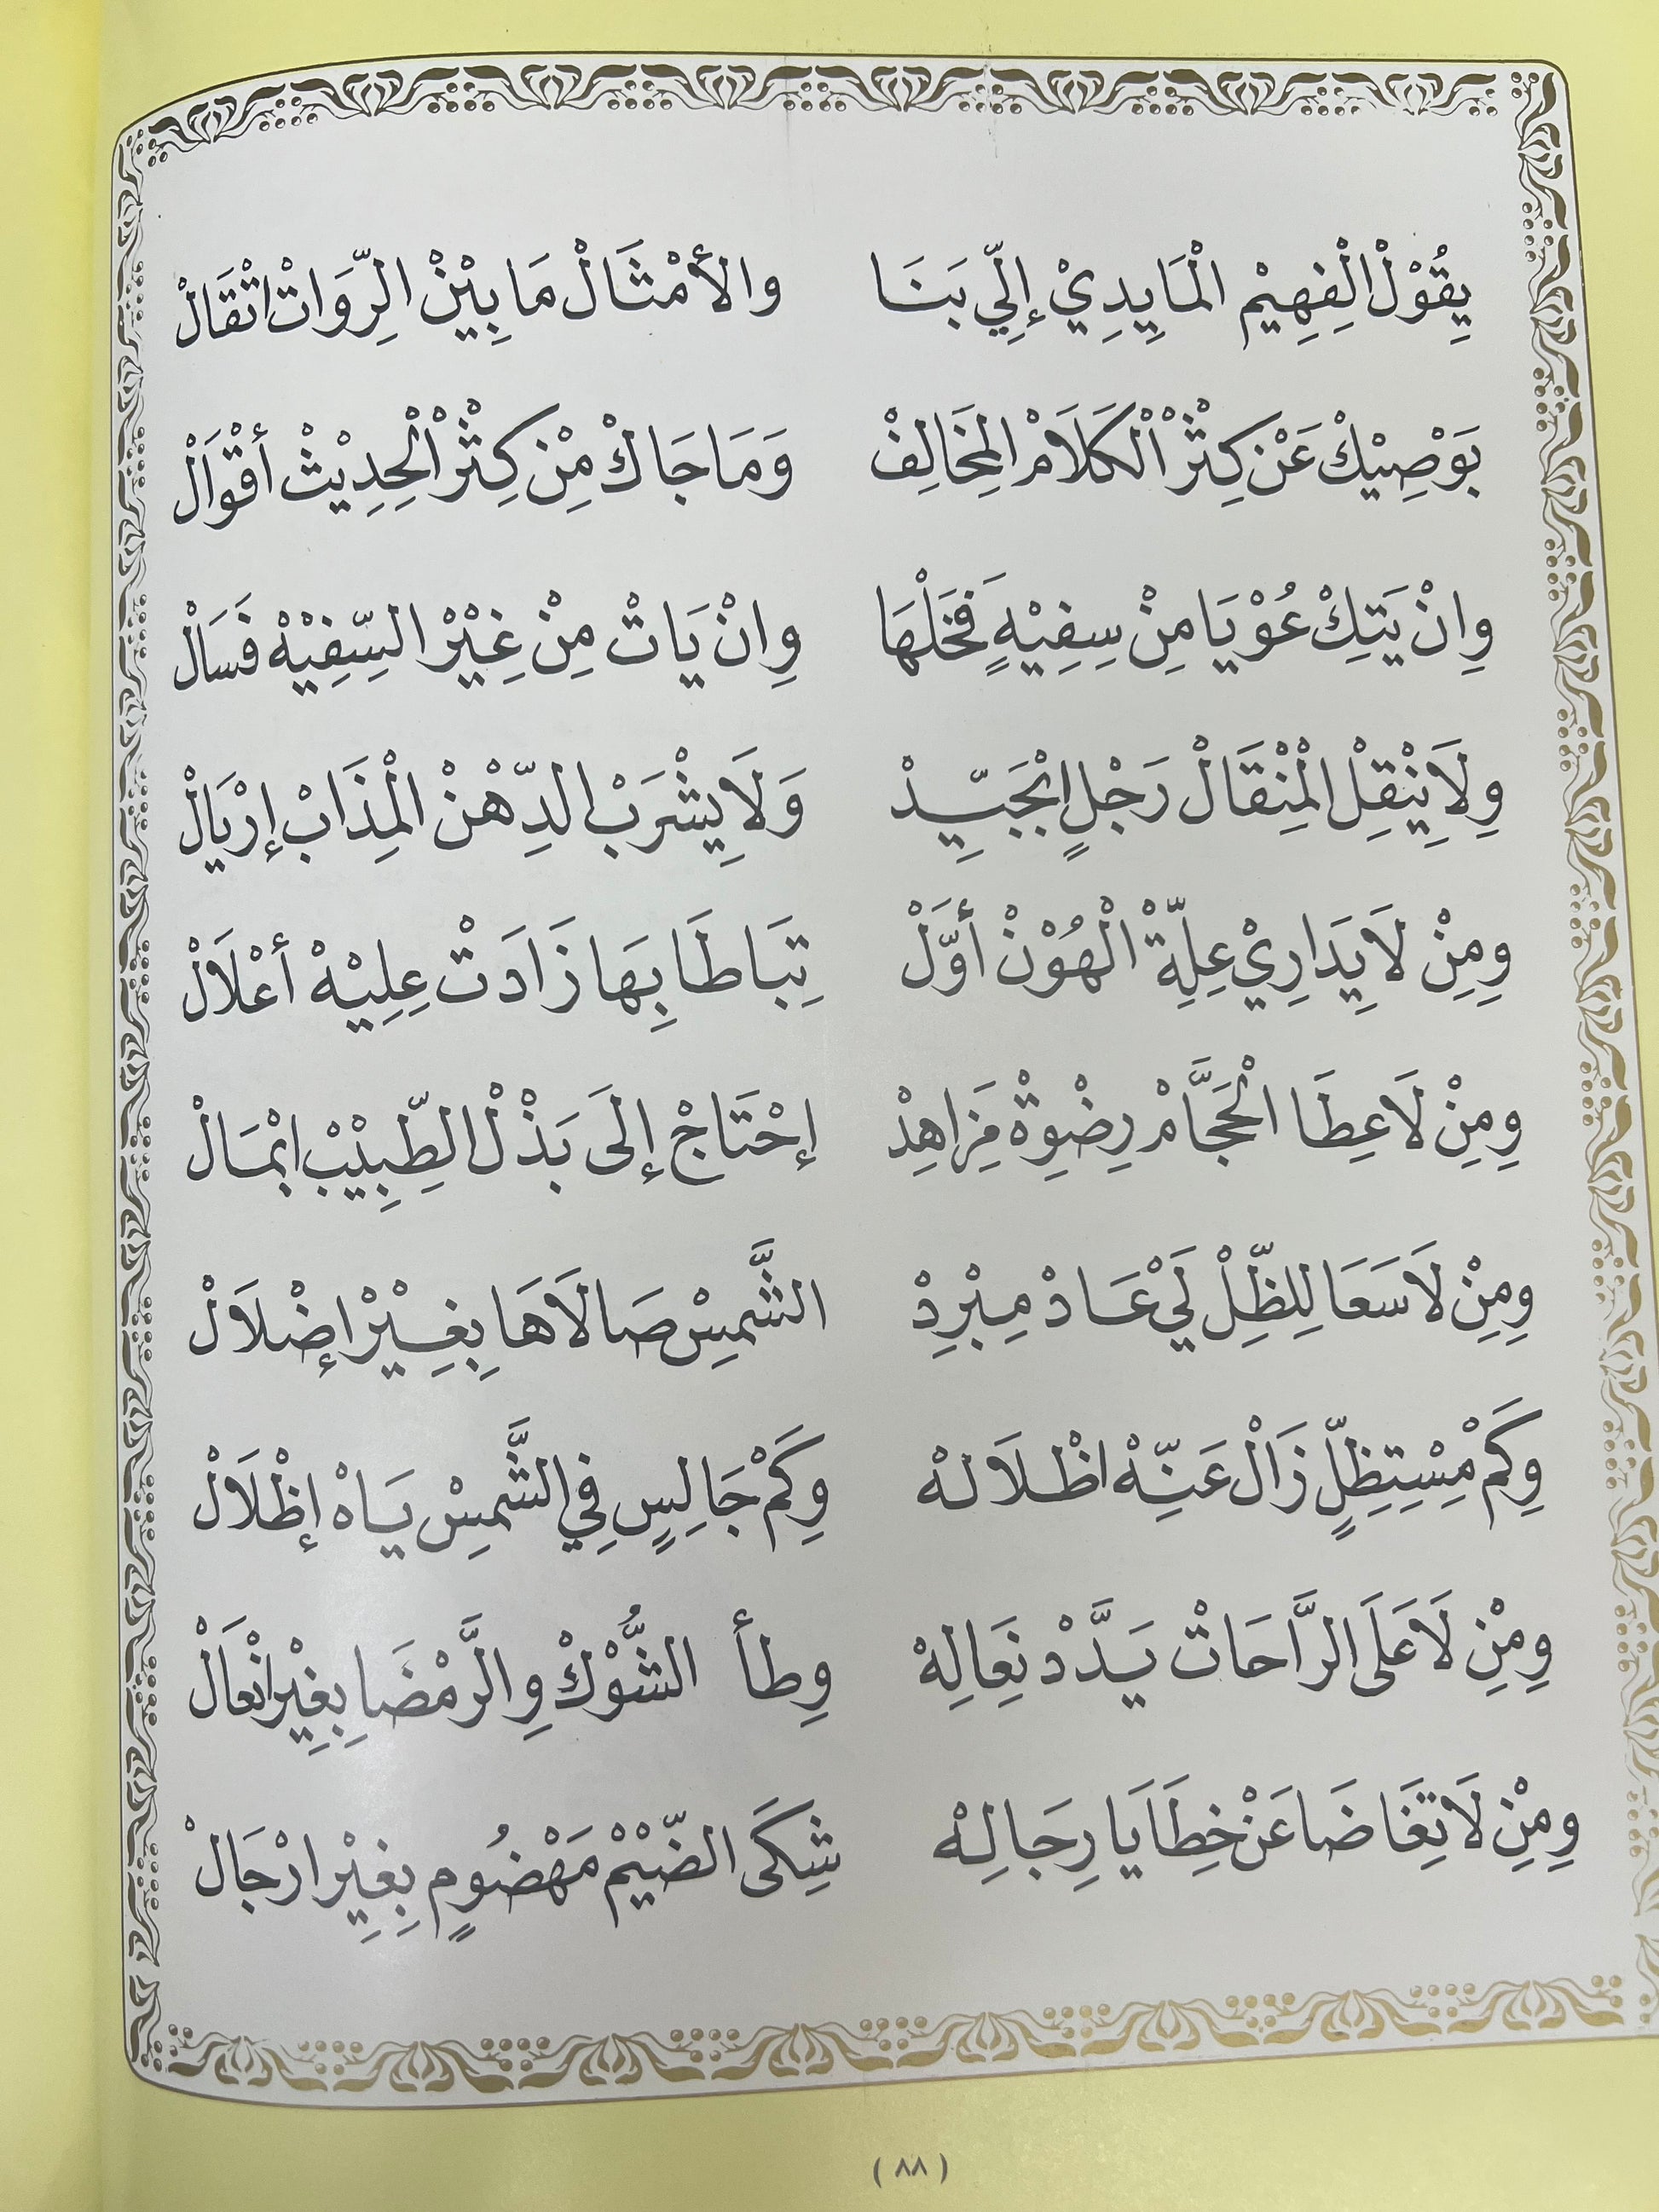 يِقُوْلْ الْفِهِيْمْ الْمَايِدِيْ إِلِّي بَنَا والأَمْثَالْ مَا بِيْنْ الرِّوَاتْ اتْقَالْ
بَوْصِيْكْ عَنْ كِثْرْ الْكَلَامْ الِمْخَالِفْ وَمَا جَاكْ مِنْ كِثْرْ الْحِدِيْثْ أَقْوَالْ
وِانْ يَتِكْ عُوْيَا مِنْ سِفِيْهٍ فَخَلْهَا وِانْ يَاتْ مِنْ غِيْرْ السِّفِيْهْ فَسَالْ
وِلَا يِنْقِلْ الْمِنْقَالْ رَجْلٍ ابْجَيِّدْ وَلَا يِشْرَبْ الدِّهْنْ الْمِذَابْ إِرْيَالْ
وِمِنْ لَا يِدَارِيْ عِلِّةْ الْهُوْنْ أَوَّلْ تِبَاطَا بِهَا زَادَتْ عِلِيْهْ أَعْلَالْ
وِمِنْ لَا عِطَا الْحَجَّامْ رِضْوِةْ مَزَاهِدْ إِحْتَاجْ إِلَى بَذْلْ الطِّبِيْبْ ابْمَالْ
وِمِنْ لَا سَعَا لِلظِّلْ لَيْ عَادْ مِبْرِدْ الشَّمِسْ صَالَاهَا بِغِيْرْ إِضْلَالْ
وِكَمْ مِسْتِظِلٍّ زَالْ عَنِّهْ اظْلَالهْ وِكَمْ جَالِسٍ فِي الشَّمِسْ يَاهْ إِظْلَالْ
وِمِنْ لَا عَلَى الرَّاحَاتْ يَدَّدْ نِعَالِهْ وِطأ الشُّوْكْ وِالرَّمْضَا بِغِيْرِ انْعَالْ
وِمِنْ لَا تِغَاضَا عَنْ خِطَايَا رِجَالِهْ شِكَى الضِّيْمْ مَهْضُومٍ بِغِيْرِ ارْجَالْ
(٨٨)